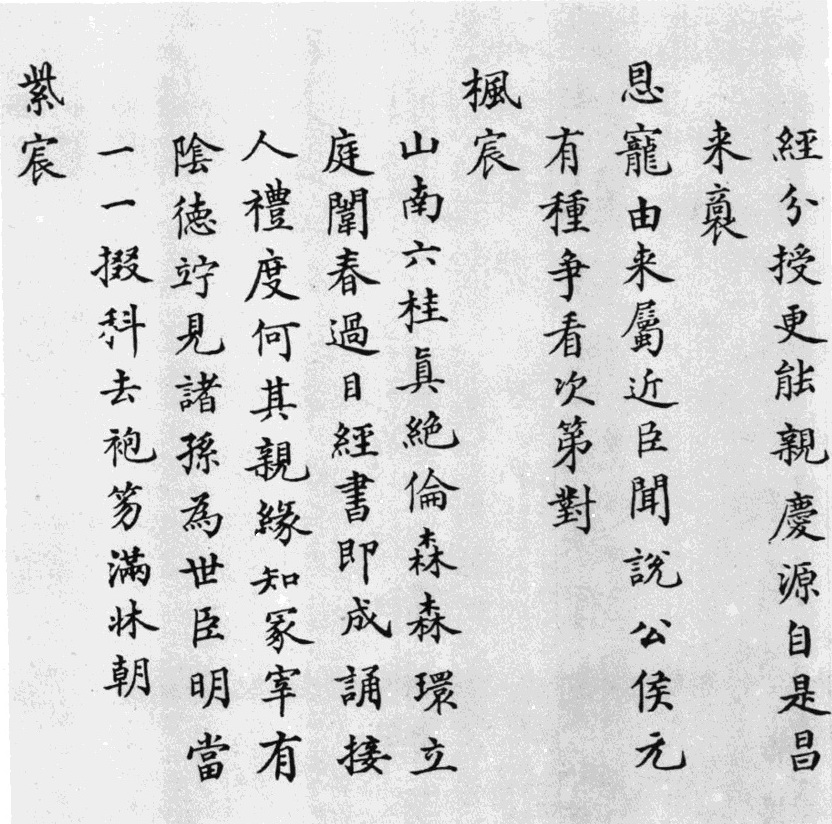 經分授更能親慶源自是昌
来裔
恩寵由来屬近臣聞說公侯元
有種争看次第對
楓宸
山南六桂真絕倫森森環立
庭闈春過目經書即成誦接
人禮度何其親緣知冢宰有
陰德竚見諸孫為世臣明當
一一掇科去袍笏滿牀朝
紫宸